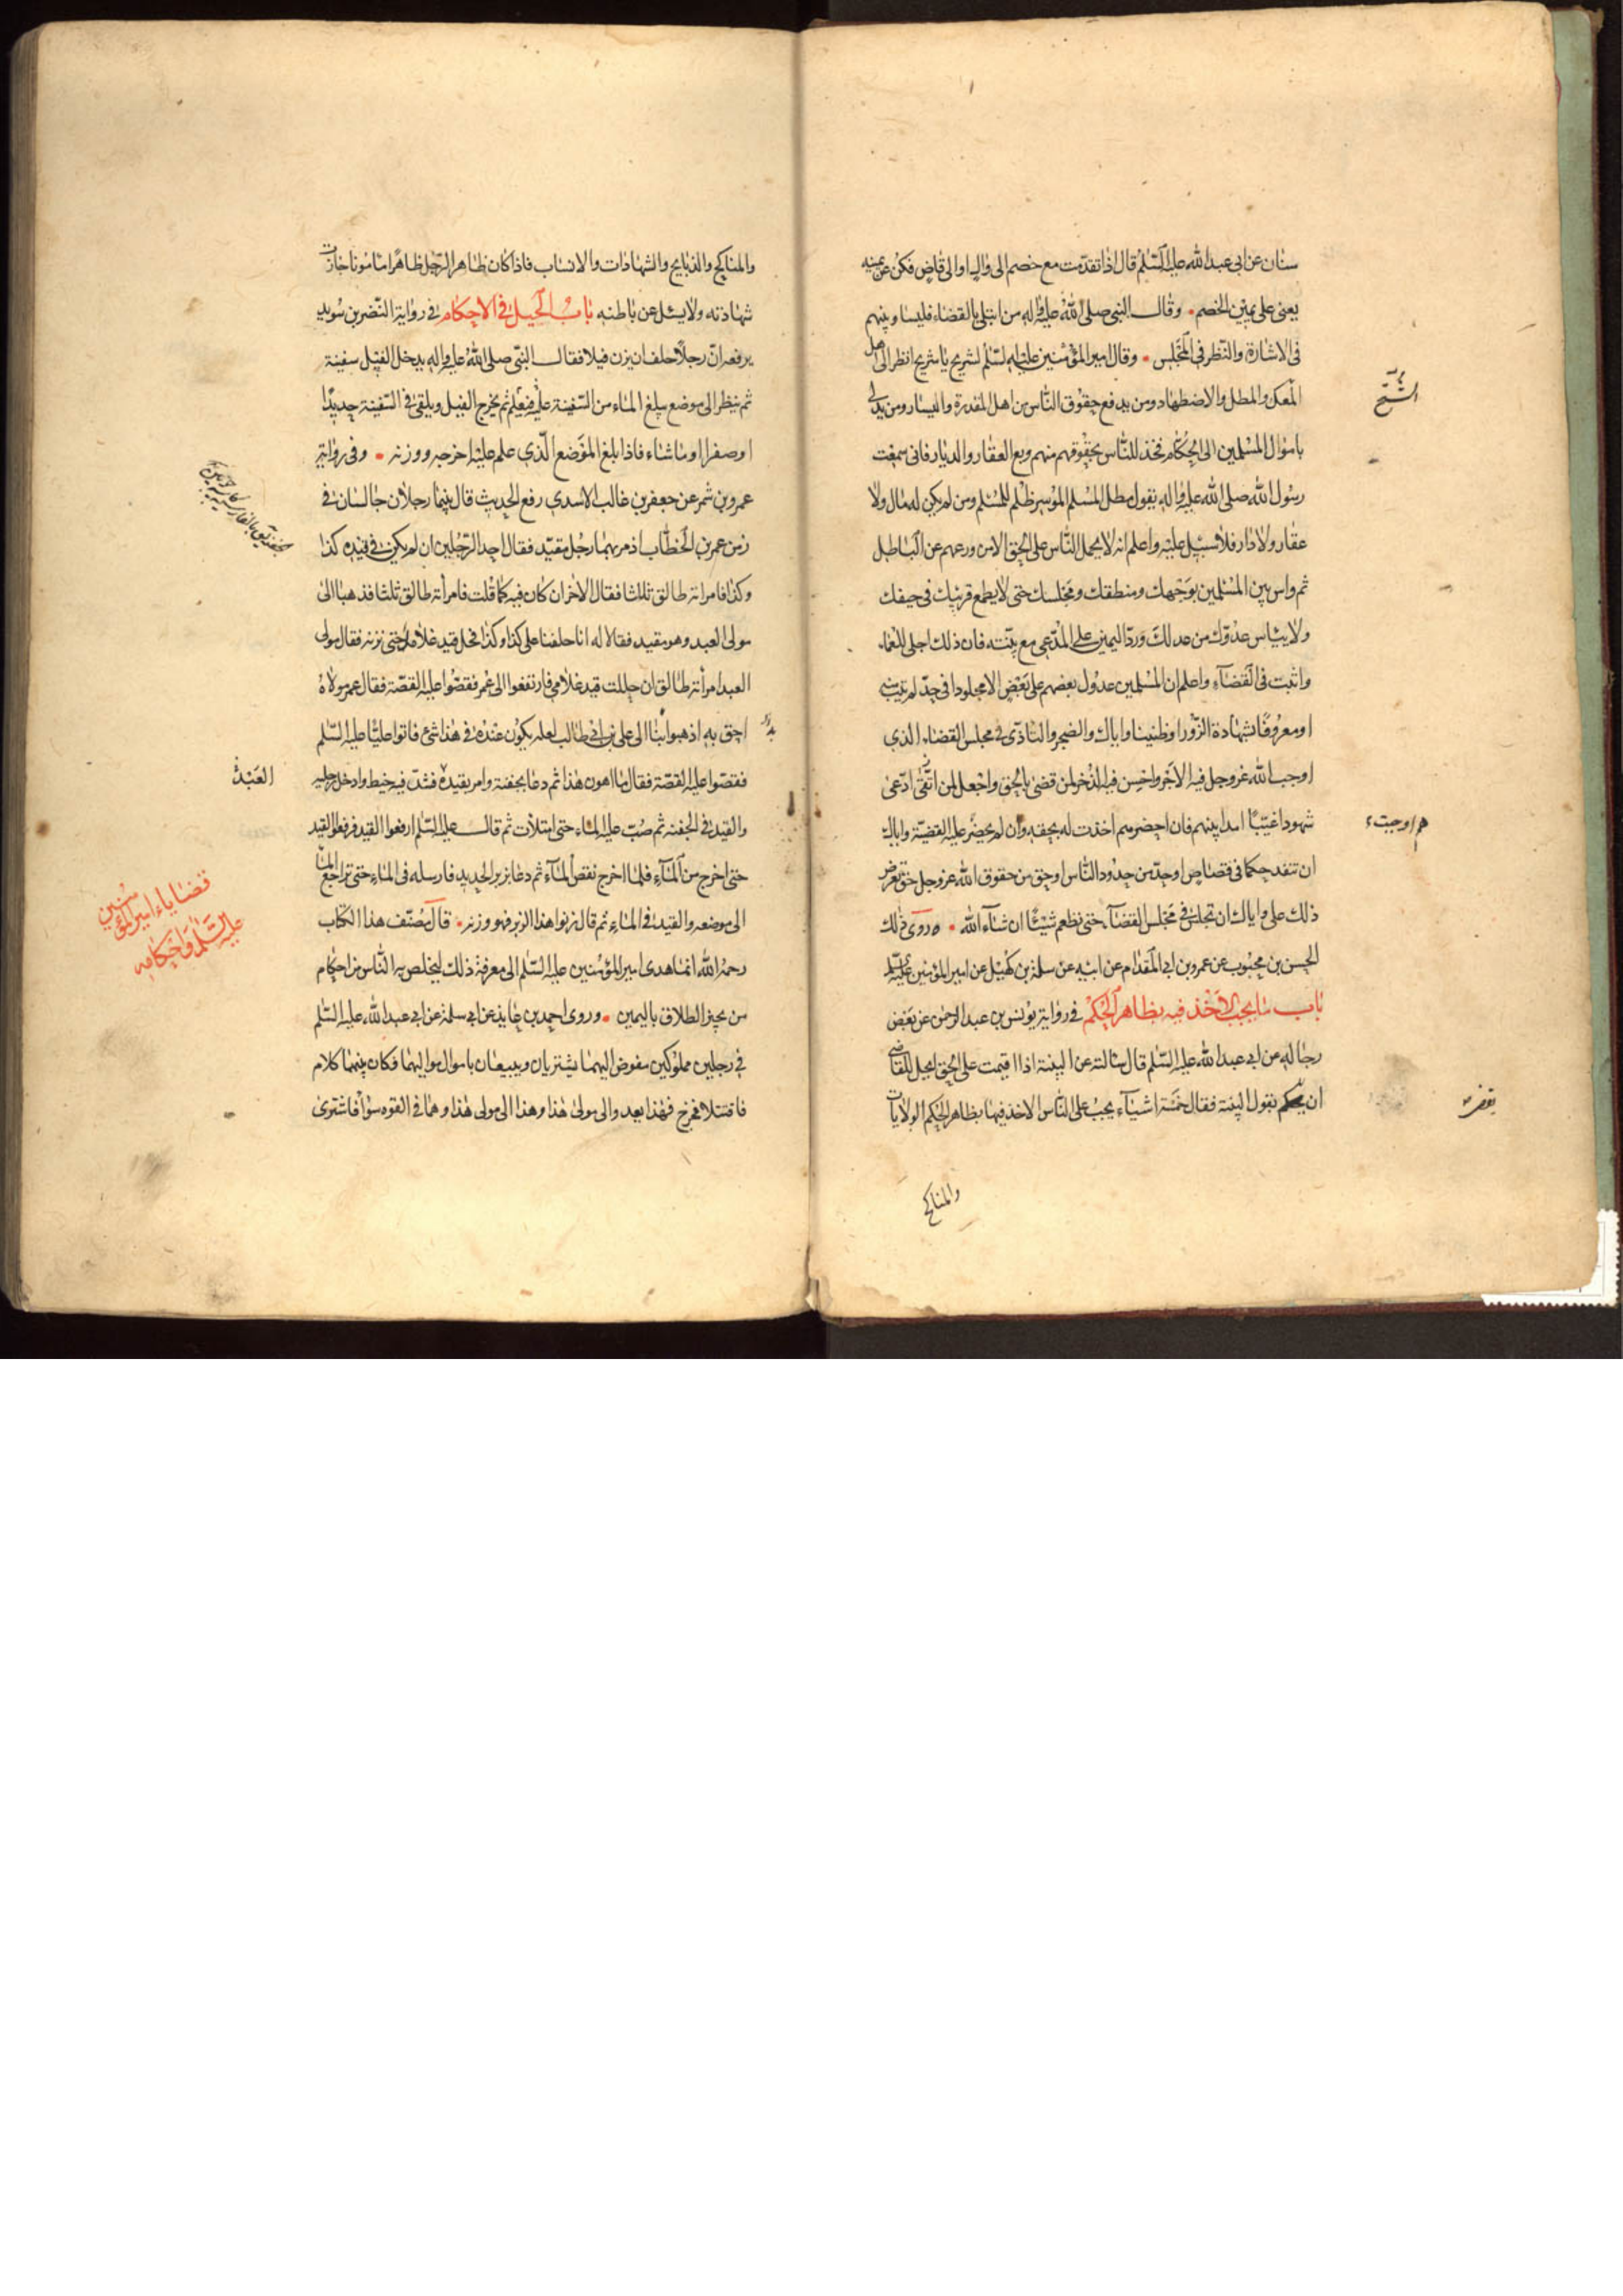 سنان عن ابى عبد الله عليه السلم قال اذا تقدمت مع خصم الى وال او الى قاض فكن عن يمينه
يعنى على يمين الخصم وقال النبى صلى الله عليه واله من ابتلى بالقضاء فليساو بينهم
فى الاشارة والنظر فى المجلس وقال امير المؤمنين عليه السلم لشريح يا شريح انظر الى اهل
المعك والمطل والاضطهاد ومن يدفع حقوق الناس من اهل المقدرة واليسار ومن يدلى
باموال المسلمين الى الحكام فخذ للناس بحقوقهم منهم وبع العقار والديار فانى سمعت
رسول الله صلى الله عليه واله يقول مطل المسلم الموسر ظلم للمسلم ومن لم يكن له مال ولا
عقار ولا دار فلا سبيل عليه واعلم انه لا يحمل الناس على الحق الا من ورعهم عن الباطل
ثم واس بين المسلمين بوجهك ومنطقك ومجلسك حتى لا يطمع قريبك فى حيفك
ولا يياس عدوك من عدلك ورد اليمين على المدعى مع بينته فان ذلك اجلى للعماء
واثبت فى القضاء واعلم ان المسلمين عدول بعضهم على بعض الا مجلودا فى حد لم يتب منه
او معروفا بشهادة الزور او ظنينا واياك والضجر والتاذى فى مجلس القضاء الذى
اوجب الله عز وجل فيه الاجر واحسن فيه الذخر لمن قضى بالحق واجعل لمن ادعى
شهودا غيبا امدا بينهم فان احضرهم اخذت له بحقه وان لم يحضر عليه القضية واياك
ان تنفذ حكما فى قصاص او حد من حدود الناس او حق من حقوق الله عز وجل حتى تعرض
ذلك على واياك ان تجلس فى مجلس القضاء حتى تطعم شيئا ان شاء الله روى ذلك
الحسن بن محبوب عن عمرو بن ابى المقدام عن ابيه عن سلمة بن كهيل عن امير المؤمنين عليه السلم
باب ما يجب الاخذ فيه بظاهر الحكم فى رواية يونس بن عبد الرحمن عن بعض
رجاله عن ابى عبد الله عليه السلم قال سالته عن البينة اذا اقيمت على الحق ايحل للقاضى
ان يحكم بقول البينة فقال خمسة اشياء يجب على الناس الاخذ فيها بظاهر الحكم الولايات
والمناكح
الشح
اوجبت
والمناكح والذبايح والشهادات والانساب فاذا كان ظاهر الرجل ظاهرا مامونا جازت
شهادته ولا يسئل عن باطنه باب الحيل فى الاحكام فى رواية النضر بن سويد
يرفعه ان رجلا حلف ان يزن فيلا فقال النبى صلى الله عليه واله يدخل الفيل سفينة
ثم ينظر الى موضع مبلغ الماء من السفينة فيعلم عليه ثم يخرج الفيل ويلقى فى السفينة حديدا
او صفرا او ما شاء فاذا بلغ الموضع الذى علم عليه اخرجه ووزنه وفى رواية
عمرو بن شمر عن جعفر بن غالب الاسدى رفع الحديث قال بينما رجلان جالسان فى
زمن عمر بن الخطاب اذ مر بهما رجل مقيد فقال احد الرجلين ان لم يكن فى قيده كذا
وكذا فامراته طالق ثلاثا فقال الاخر ان كان فيه كما قلت فامرأته طالق ثلثا فذهبا الى
مولى العبد وهو مقيد فقالا له انا حلفنا على كذا وكذا فحل قيد غلامك حتى نزنه فقال مولى
العبد امرأته طالق ان حللت قيد غلامى فارتفعوا الى عمر فقصوا عليه القصة فقال عمر مولاه
احق به اذهبوا بنا الى على بن ابى طالب لعله يكون عنده فى هذا شئ فاتوا عليا عليه السلم
فقصوا عليه القصة فقال ما اهون هذا ثم دعا بجفنة وامر بقيده فشد فيه خيط وادخل رجليه
والقيد فى الجفنة ثم صب عليه الماء حتى امتلأت ثم قال عليه السلم ارفعوا القيد فرفعوا القيد
حتى اخرج من الماء فلما اخرج نقص الماء ثم دعا بزبر الحديد فارسله فى الماء حتى تراجع الماء
الى موضعه والقيد فى الماء ثم قال زنوا هذا الزبر فهو وزنه قال مصنف هذا الكتاب
رحمه الله انما هدى امير المؤمنين عليه السلم الى معرفة ذلك ليخلص به الناس من احكام
من يجيز الطلاق باليمين وروى احمد بن عايذ عن ابى سلمة عن ابى عبد الله عليه السلم
فى رجلين مملوكين مفوض اليهما يشتريان ويبيعان باموال مواليهما فكان بينهما كلام
فاقتتلا فخرج فهذا يعد والى مولى هذا وهذا الى مولى هذا وهما فى القوة سواء فاشترى
العبد
قضايا امير المؤمنين
عليه السلم واحكامه